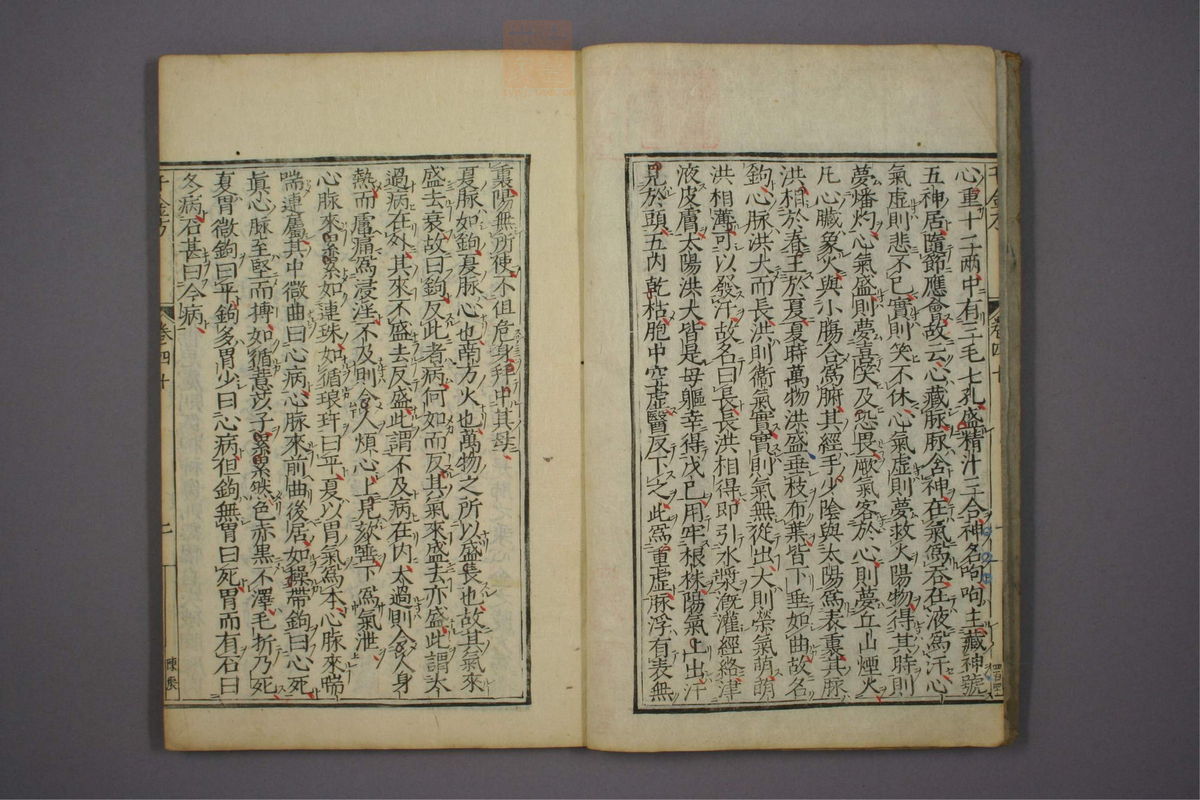 心重十二兩中有三毛七孔盛精汁三合神名呴呴主藏神號
五神居隨節應會故云心藏脉脉舍神在氣爲吞在液爲汗心
氣虛則悲不已實則笑不休心氣虛則夢救火陽物得其時則
夢燔灼心氣盛則夢喜笑及恐畏厥氣客於心則夢丘山煙火
凡心臟象火與小腸合爲腑其經手少陰與太陽爲表裏其脉
洪相於春王於夏夏時萬物洪盛垂枝布葉皆下垂如曲故名
鉤心脉洪大而長洪則衞氣實實則氣無從出大則榮氣萌萌
洪相薄可以發汗故名曰長長洪相得即引水漿漑灌經絡津
液皮膚太陽洪大皆是母軀幸得戊己用牢根株陽氣上出汗
見於頭五内乾枯胞中空虛醫反下之此爲重虛脉浮有表無
千金方
卷四十
一
裏陽無所使不但危身并中其母
夏脉如鉤夏脉心也南方火也萬物之所以盛長也故其氣來
盛去衰故曰鉤反此者病何如而反其氣來盛去亦盛此謂太
過病在外其來不盛去反盛此謂不及病在内太過則令人身
熱而膚痛爲浸淫不及則令人煩心上見欬唾下爲氣泄
心脉來累累如連珠如循琅玕曰平夏以胃氣爲本心脉來喘
喘連屬其中微曲曰心病心脉來前曲後居如操帶鉤曰心死
眞心脉至堅而搏如循薏苡子累累然色赤黒不澤毛折乃死
夏胃微鉤曰平鉤多胃少曰心病但鉤無胃曰死胃而有石曰
冬病石甚曰今病
千金方
卷四十
二